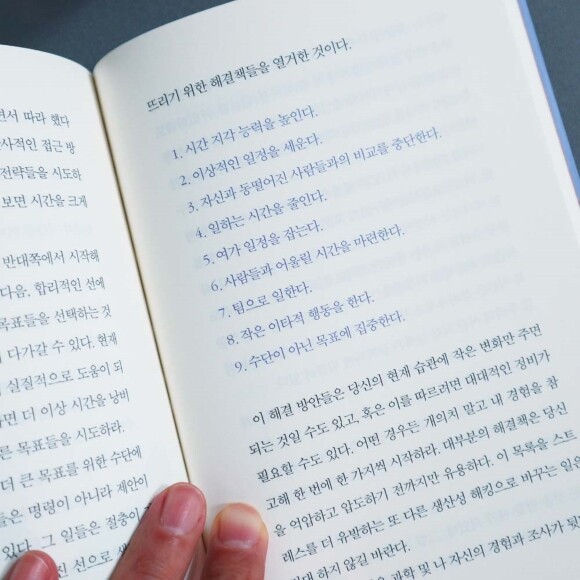 면서 따라 했다
사적인 접근 방
전략들을 시도하
보면 시간을 크게
반대쪽에서 시작해
다음, 합리적인 선에
목표들을 선택하는 것
다가갈 수 있다. 현재
실질적으로 도움이 되
면 더 이상 시간을 낭비
른 목표들을 시도하라.
더 큰 목표를 위한 수단에
들은 명령이 아니라 제안이
있다. 그 일들은 절충이
진 선으로
뜨리기 위한 해결책들을 열거한 것이다.
1. 시간 지각 능력을 높인다.
2. 이상적인 일정을 세운다.
3. 자신과 동떨어진 사람들과의 비교를 중단한다.
4. 일하는 시간을 줄인다.
5. 여가 일정을 잡는다.
6. 사람들과 어울릴 시간을 마련한다.
7. 팀으로 일한다.
8. 작은 이타적 행동을 한다.
9. 수단이 아닌 목표에 집중한다.
이 해결 방안들은 당신의 현재 습관에 작은 변화만 주면
되는 것일 수도 있고, 혹은 이를 따르려면 대대적인 정비가
필요할 수도 있다. 어떤 경우든 개의치 말고 내 경험을 참
고해 한 번에 한 가지씩 시작하라. 대부분의 해결책은 당신
을 억압하고 압도하기 전까지만 유용하다. 이 목록을 스트
레스를 더 유발하는 또 다른 생산성 해킹으로 바꾸는 일은
하지 않길 바란다.
과학 및 나 자신의 경험과 조사가 뒷